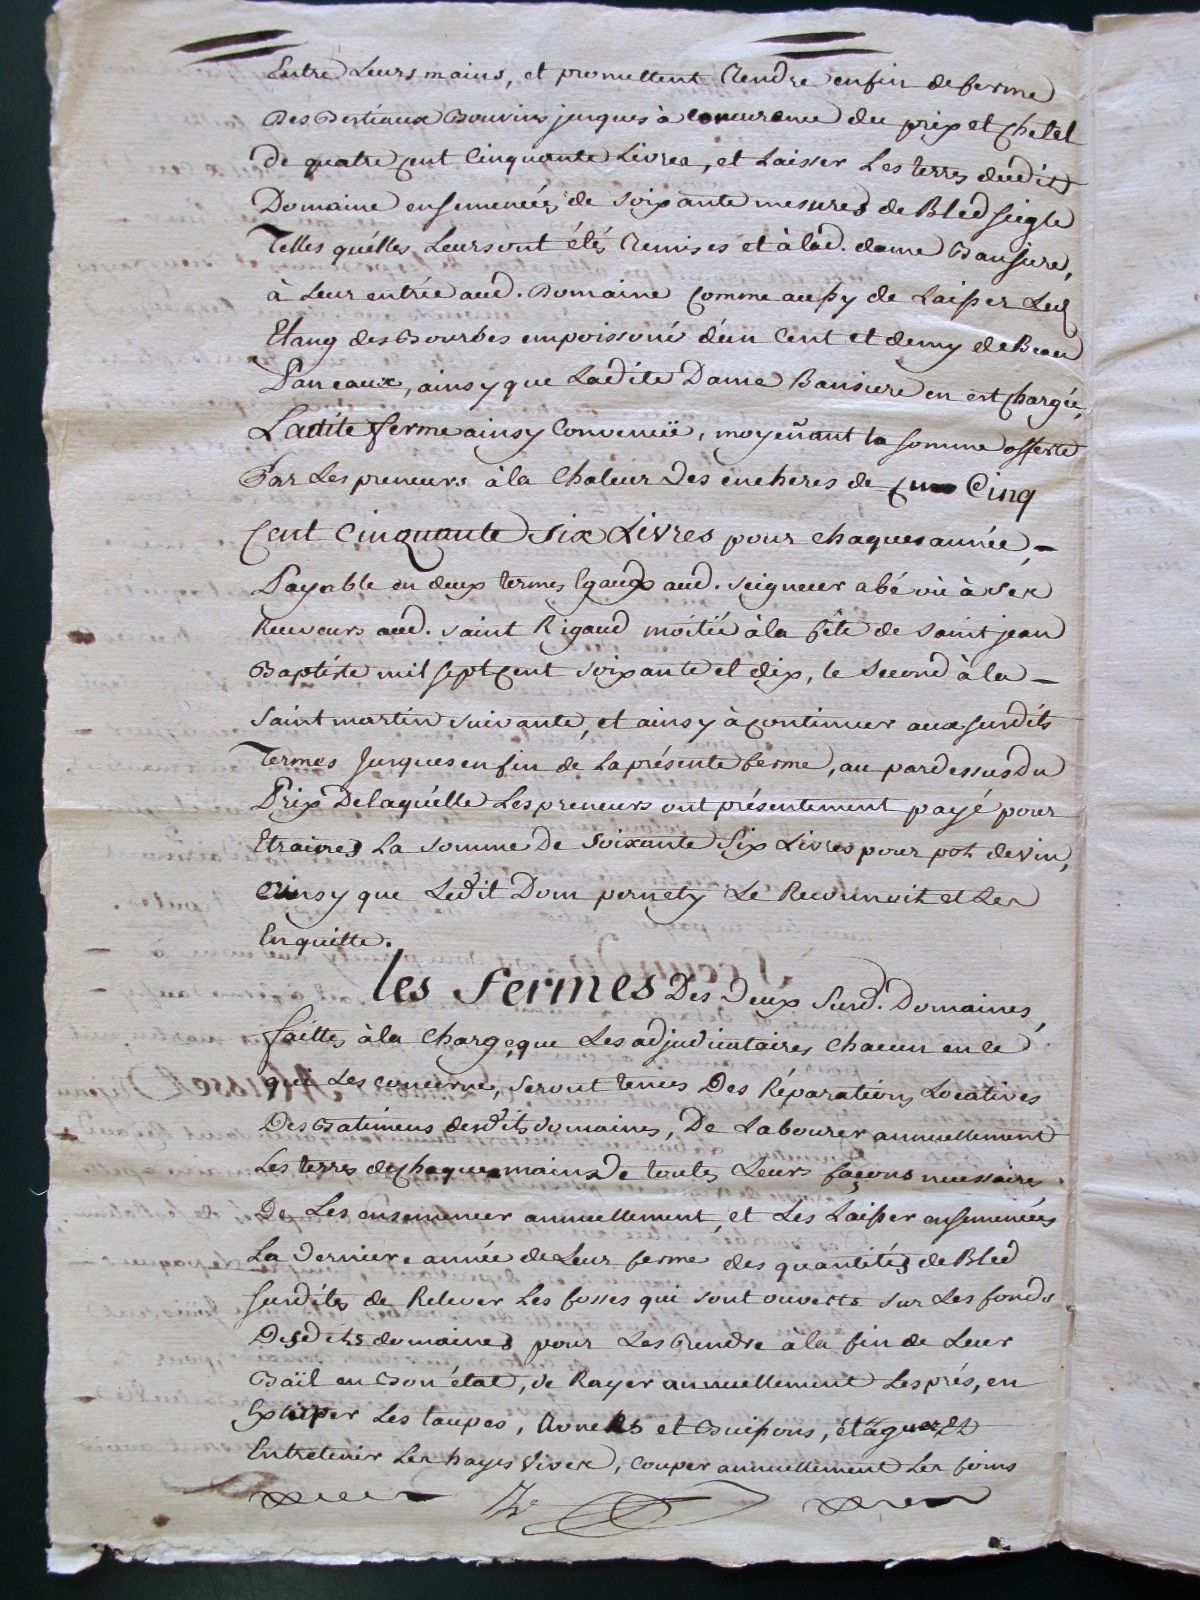 Entre Leurs mains, et promettent Rendre en fin de ferme
Des Bestiaux Bouvins jusques à concurance du prix et Chetel
De quatre cent Cinquante Livres, et Laisser Les terres dudit
Domaine ensemencées de soixante mesures de Bled seigle
Telles quélles Leurs ont étés Remises et à lad. dame Bansiere,
à Leur entrée aud. Domaine comme aussy de Laisser Led
Etang des Bourbes empoissoné d'un Cent et demy de Beau
Paneaux, ainsy que Ladite Dame Bansiere en est chargée,
Ladite ferme ainsy Convenüe, moyeñant la somme offerte
Par Les preneurs à la Chaleur Des encheres de Cinq
Cent Cinquante Six Livres pour chaques année,
Payable en deux termes Egaux aud. seigneur abé où à ses
Receveurs aud. saint Rigaud moitié à la fête de saint jean
Baptiste mil sept cent soixante et dix, le second à la
saint martin suivante, et ainsy à continuer aux susdits
Termes Jusques en fin de la présente ferme, au pardessus du
Prix De laquélle Les preneurs ont présentement payé pour
Etraines La somme De soixante Six Livres pour pot de vin,
ainsy que Ledit Dom pernety Le Reconnoit et Les
En quitte.
les fermes Des Deux Susd. Domaines,
faittes à la Charge, que Les adjudicataires Chacun en ce
qui Les concerne, seront tenus Des Réparations Locatives
Des Batimens desdits domaines, De Labourer annuellement
Les terres de chaques mains De toutes Leurs façons necessaires
De Les ensemencer annuellement, et Les Laisser ensemencées
La derniere année de Leur ferme des quantités de Bled
susdites de Relever Les fosses qui sont ouverts sur Les fonds
Desdits domaines pour Les Rendre à la fin de Leur
Baïl en Bon état, de Rayer annuellement Les prés, en
Extirper Les taupes, et Buissons, élaguer et
Entretenir Les hayes vives, couper annuellement Les foins